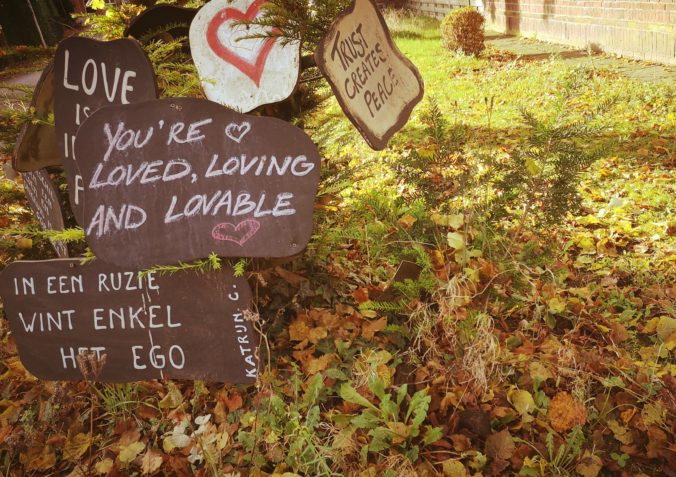 LOVE
TRUST
CREATES
PEACE
YOU'RE
LOVED, LOVING
AND LOVABLE
IN EEN RUZIE
WINT ENKEL
HET EGO
KATRIJN C.